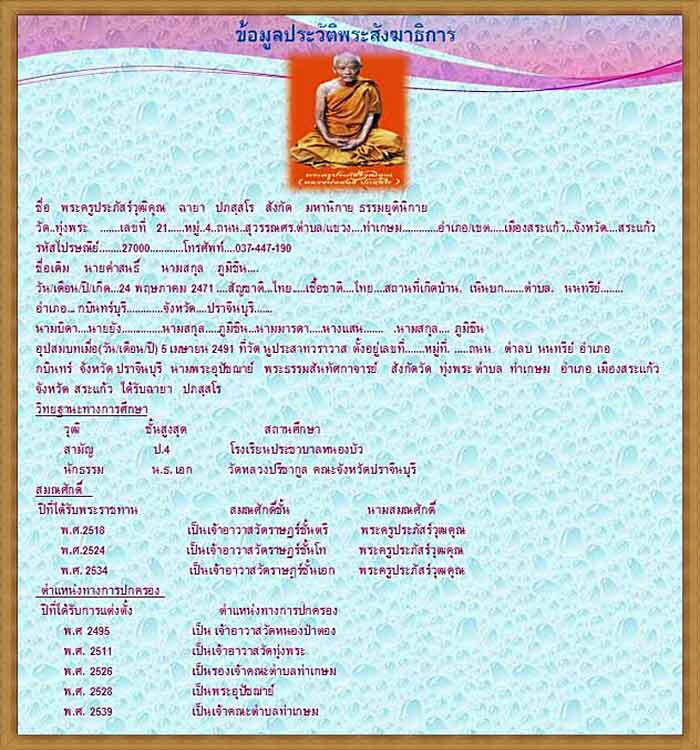 ข้อมูลประวัติพระสังฆาธิการ
ชื่อ พระครูประภัสร์วุฒิคุณ ฉายา ปภสฺสโร สังกัด มหานิกาย ธรรมยุตินิกาย
วัด..ทุ่งพระ .......เลขที่ 21......หมู่..4..ถนน..สุวรรณศร.ตำบล/แขวง....ท่าเกษม............อำเภอ/เขต.....เมืองสระแก้ว...จังหวัด....สระแก้ว
รหัสไปรษณีย์........27000............โทรศัพท์....037-447-190
ชื่อเดิม นายคำสนธิ์ นามสกุล ภูมิชิน....
วัน/เดือน/ปี/เกิด...24 พฤษภาคม 2471 ....สัญชาติ...ไทย.....เชื้อชาติ....ไทย....สถานที่เกิดบ้าน. เนินบก.......ตำบล. นนทรีย์........
อำเภอ... กบินทร์บุรี.............จังหวัด....ปราจีนบุรี.......
นามบิดา....นายยัง..............นามสกุล....ภูมิชิน...นามมารดา.....นางแสน....... .นามสกุล.... ภูมิชิน
อุปสมบทเมื่อ(วัน/เดือน/ปี) 5 เมษายน 2491 ที่วัด นูประสาทวราวาส ตั้งอยู่เลขที่.......หมู่ที่. .....ถนน ตำลบ นนทรีย์ อำเภอ
กบินทร์ จังหวัด ปราจีนบุรี นามพระอุปัชฌาย์ พระธรรมสันทัศกาจารย์ สังกัดวัด ทุ่งพระ ตำบล ท่าเกษม อำเภอ เมืองสระแก้ว
จังหวัด สระแก้ว ได้รับฉายา ปภสฺสโร
วิทยฐานะทางการศึกษา
วุฒิ ชั้นสูงสุด สถานศึกษา
สามัญ ป.4 โรงเรียนประชาบาลหนองบัว
นักธรรม น.ธ. เอก วัดหลวงปรีชากูล คณะจังหวัดปราจีนบุรี
สมณศักดิ์
ปีที่ได้รับพระราชทาน สมณศักดิ์ชั้น นามสมณศักดิ์
พ.ศ.2518 เป็นเจ้าอาวาสวัดราษฎร์ชั้นตรี พระครูประภัสร์วุฒคุณ
พ.ศ.2524 เป็นเจ้าอาวาสวัดราษฎร์ชั้นโท พระครูประภัสร์วุฒคุณ
พ.ศ. 2534 เป็นเจ้าอาวาสวัดราษฎร์ชั้นเอก พระครูประภัสร์วุฒคุณ
ตำแหน่งทางการปกครอง
ปีที่ได้รับการแต่งตั้ง ตำแหน่งทางการปกครอง
พ.ศ 2495 เป็น เจ้าอาวาสวัดหนองป่าตอง
พ.ศ. 2511 เป็นเจ้าอาวาสวัดทุ่งพระ
พ.ศ. 2526 เป็นรองเจ้าคณะตำบลท่าเกษม
พ.ศ. 2528 เป็นพระอุปัชฌาย์
พ.ศ. 2539 เป็นเจ้าคณะตำบลท่าเกษม